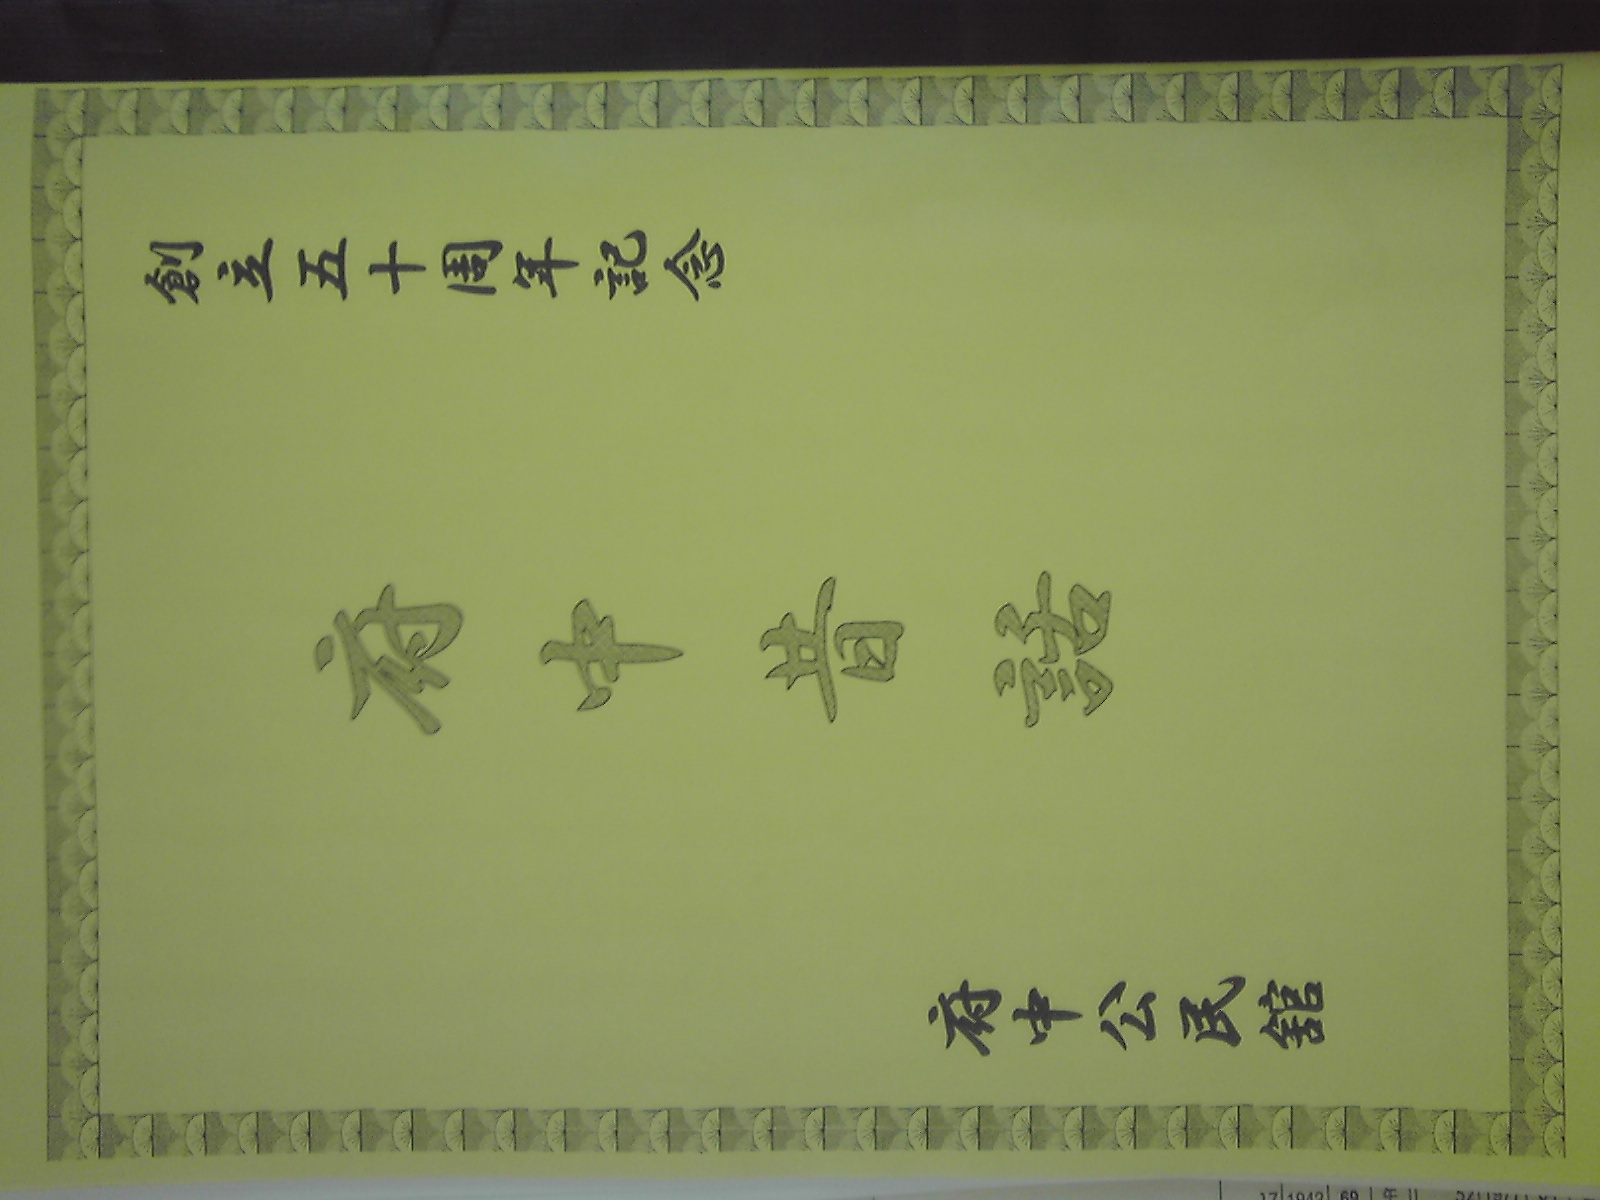 創立五十周年記念
府中昔話
府中公民館